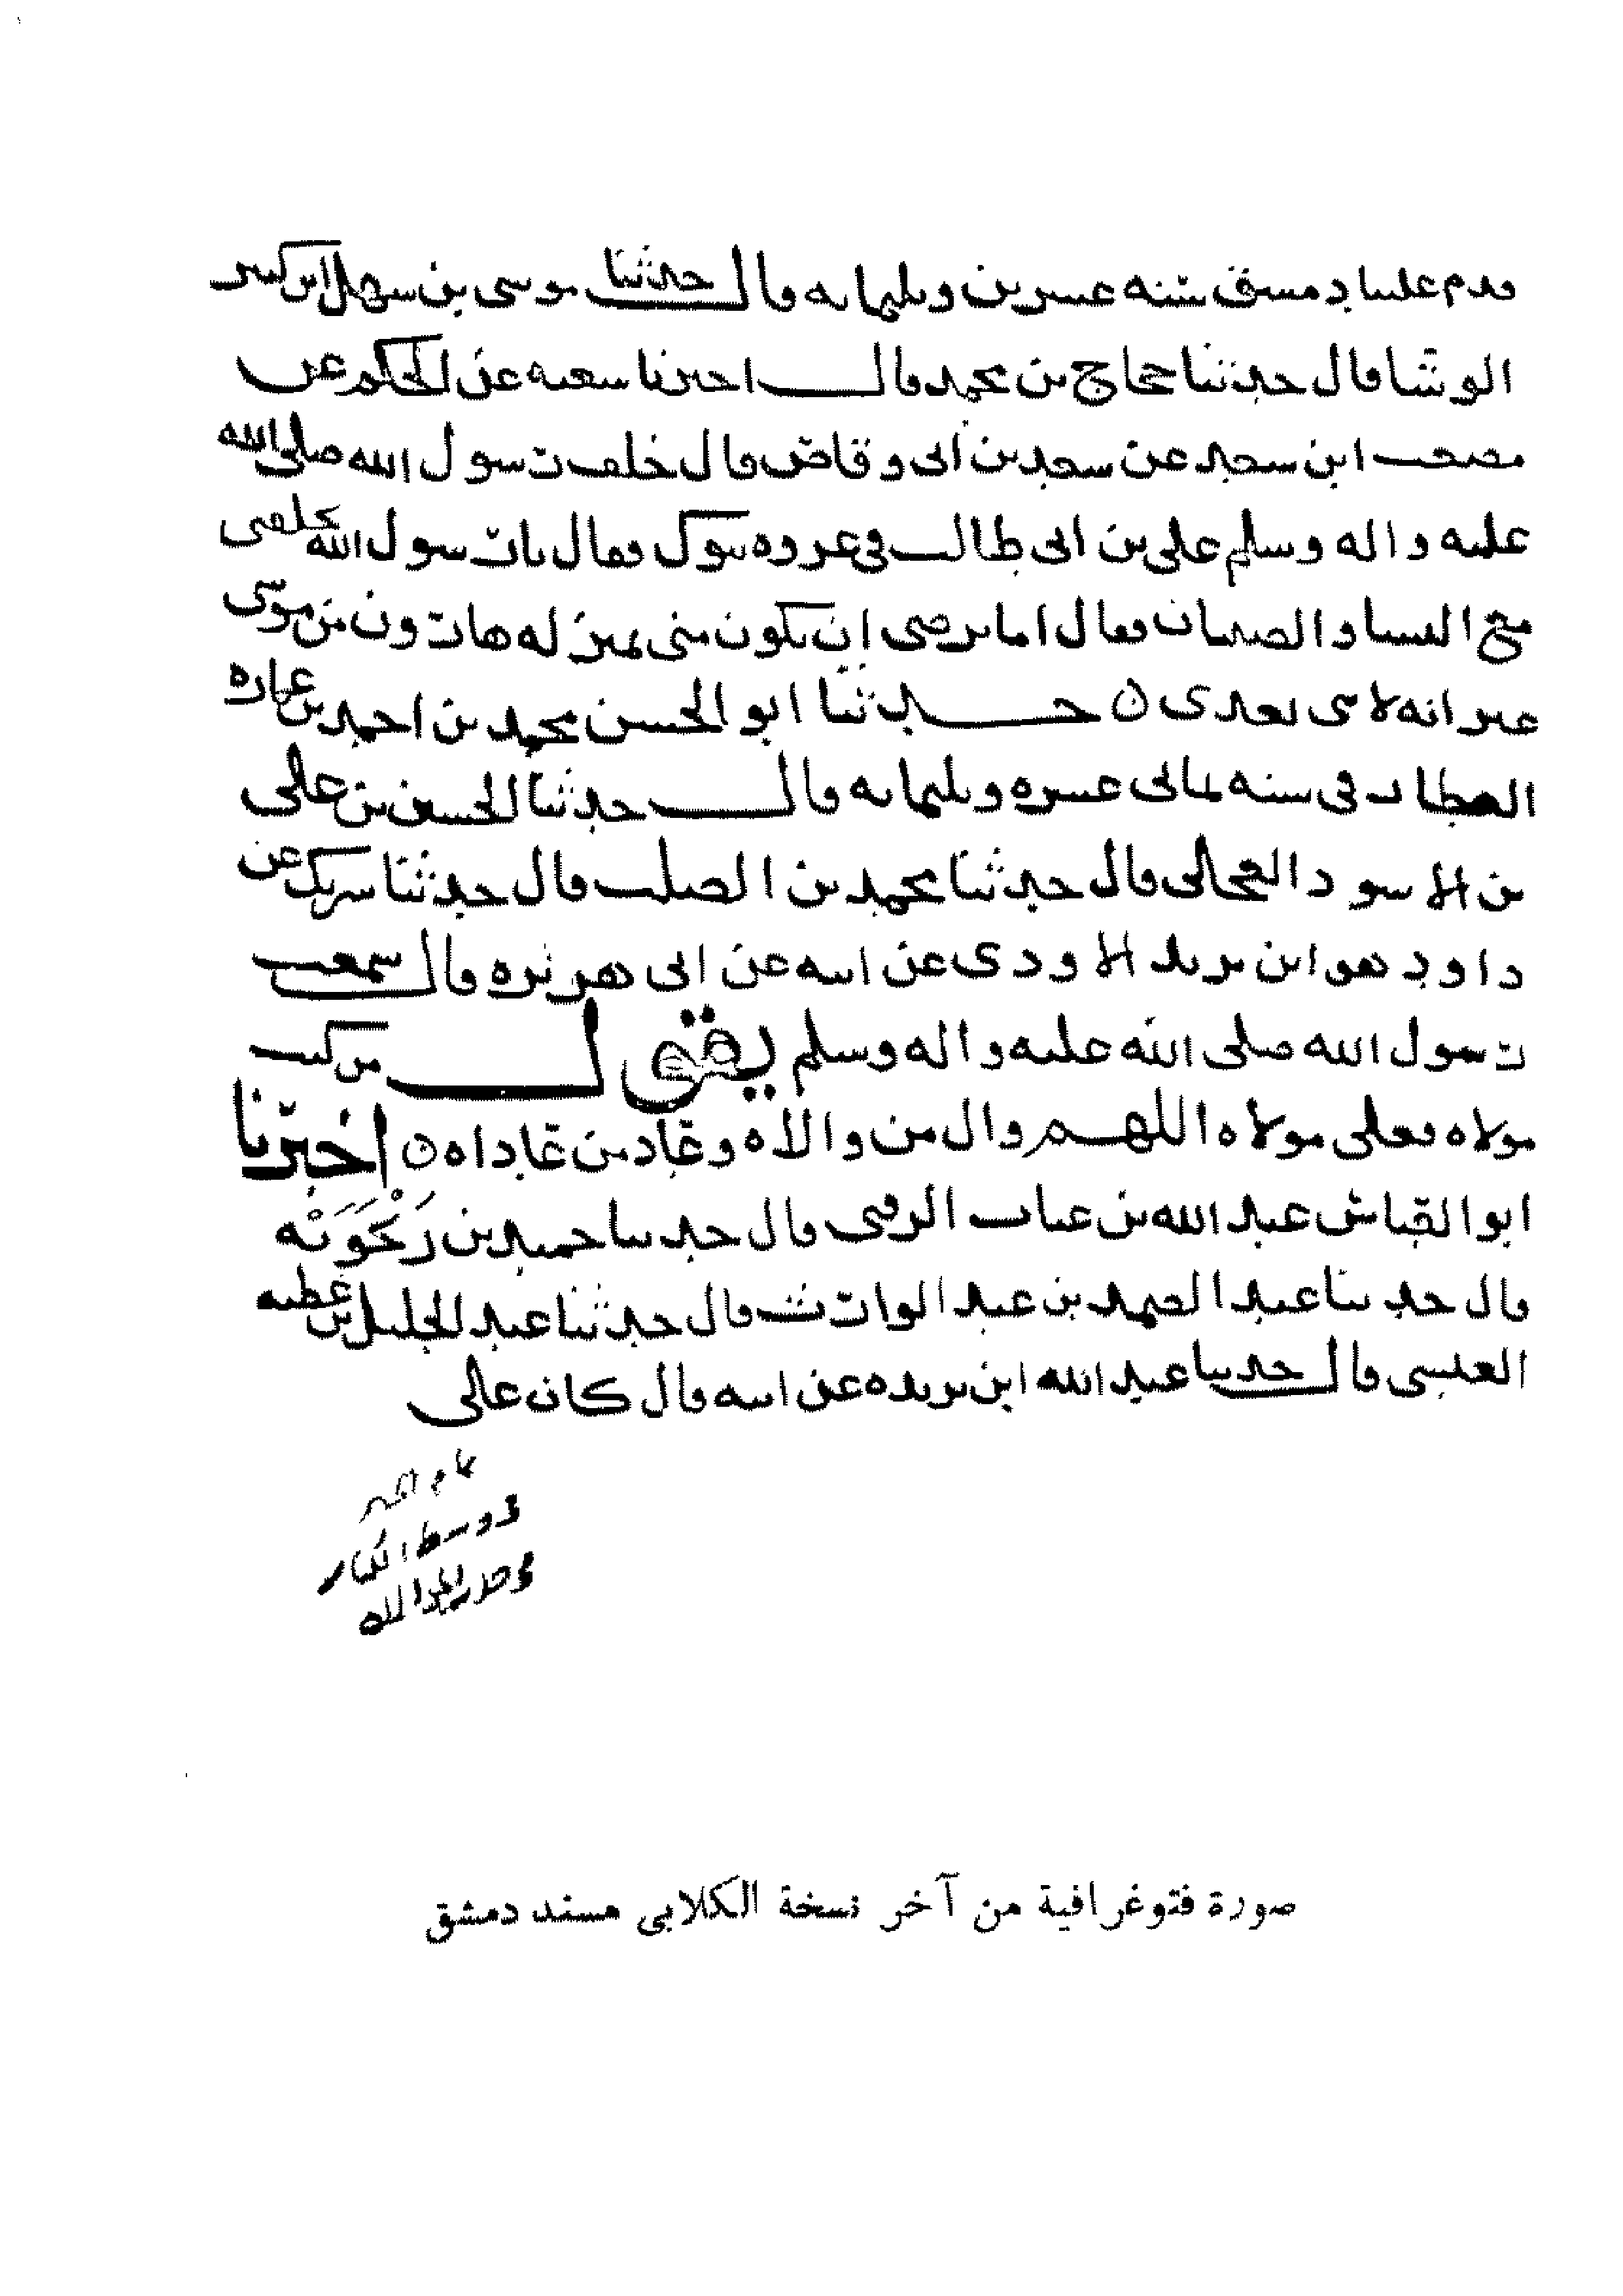 قدم علينا دمشق سنة عشرين وثلثمايه قال حدثنا موسى بن سهل ابن كثير
الوشا قال حدثنا حجاج بن محمد قال اخبرنا شعبه عن الحكم عن
مصعب ابن سعد عن سعد بن ابى وقاص قال خلف رسول الله صلى الله
عليه واله وسلم على بن ابى طالب فى غزوه تبوك فقال يا رسول الله تخلفنى
مع النسا والصبيان فقال اما ترضى ان تكون منى بمنزله هارون من موسى
غير انه لا نبى بعدى ن حدثنا ابو الحسن محمد بن احمد بن عماره
العطار فى سنه ثمانى عشره وثلثمايه قال حدثنا الحسين بن على
بن الاسود العجلى قال حدثنا محمد بن الصلت قال حدثنا شريك عن
داود هو ابن يزيد الاودى عن ابيه عن ابى هريره قال سمعت
رسول الله صلى الله عليه واله وسلم يقول من كنت
مولاه فعلى مولاه اللهم وال من والاه وعاد من عاداه ن اخبرنا
ابو العباس عبد الله بن عتاب الزفتى قال حدثنا حميد بن زَنْجَوَيْه
قال حدثنا عبد الصمد بن عبد الوارث قال حدثنا عبد الجليل بن عطيه
القيسى قال حدثنا عبد الله ابن بريده عن ابيه قال كان على
صورة فتوغرافية من آخر نسخة الكلابي مسند دمشق